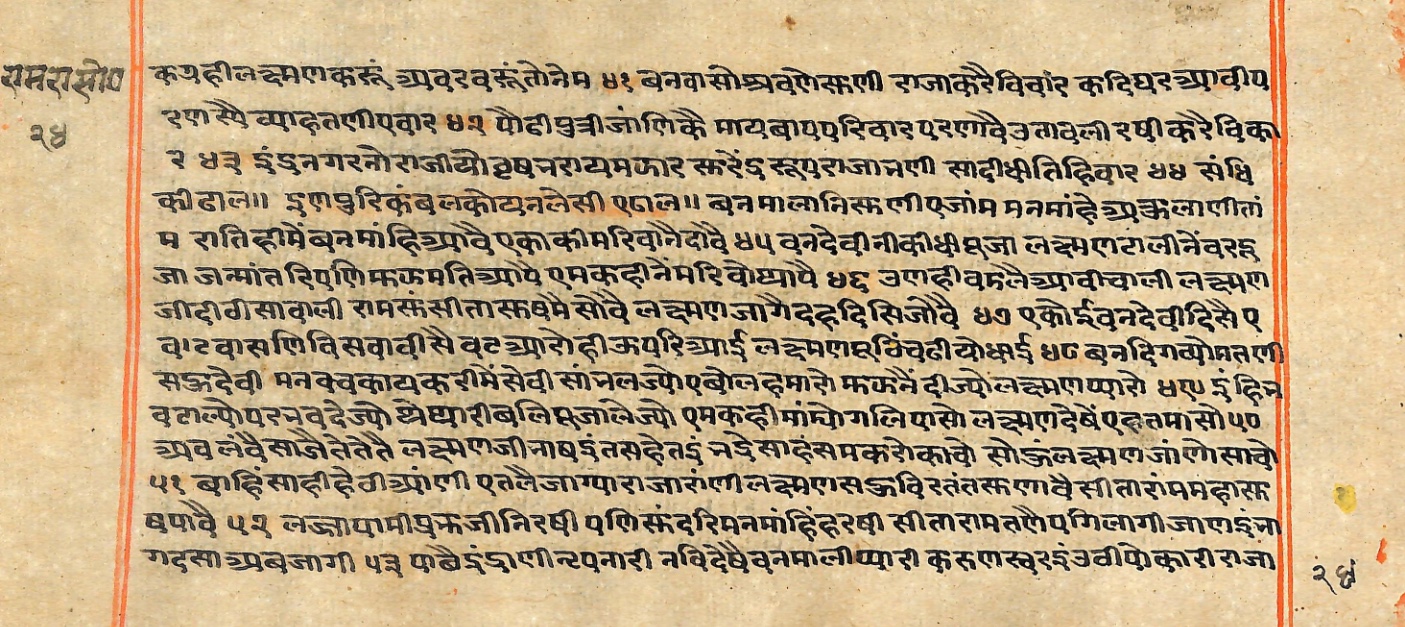 रामरासोप
२४
कउहीलक्ष्मणकरूं अवरवरूंतोनेम ४१ बनवासोश्रवणेसुणी राजाकरैविचार कदिघरआवीप
रणस्यै व्याहतणीएवार ४२ पौढीपुत्रीजांणिकै मायबापपरिवार परणावैउतावली रषीकरैविका
र ४३ इंद्रनगरनोराजीयो वृषभरायमझार सुरेंद्ररूपराजाभणी सादीधीतिहिवार ४४ संधि
कीढाल॥ इणपुरिकंबलकोयनलेसी एढाल॥ बनमालानिसुणीएजांम मनमांहेअकुलाणीतां
म रातिहीमेंबनमांहिआवै एकाकीमरिवानैदावै ४५ वनदेवीनीकीधीपूजा लक्ष्मणटालीनेंवरदू
जा जन्मांतरिपणिमुझमतिआपे एमकहीनेंमरिवोथापै ४६ उणहीवडलैआवीचाली लक्ष्मण
जीदीठीसाबाली रामसुंसीतासुषमैसोवै लक्ष्मणजागैदहदिसिजोवै ४७ एकोईवनदेवीदिसै ए
वाटवासणिविसवावीसै वटआरोहीऊपरिआई लक्ष्मणपूठिंचढीयोधाई ४८ बनदिगव्योमतणी
सहुदेवी मनवचकायकरीमेंसेवी सांभलज्योएबोलहमारो मुझनैंदीज्योलक्ष्मणप्यारो ४९ इंहिभ
वटाल्योपरभवदेज्यो थेप्यारीबलिपूजालेज्यो एमकहीमांड्योगलिपासो लक्ष्मणदेषेएहतमासो ५०
अवलंबैसाजैतेतेतै लक्ष्मणजीभाषइंतसहेतइं भद्रेसाहंसमकरोकावो सोहुंलक्ष्मणजांणोसावो
५१ बाहिंसाहीहेठीआंणी एतलैजाग्याराजारांणी लक्ष्मणसहुविरतंतसुणावै सीतारांममहासु
षपावै ५२ लज्जापामीप्रुझजीनिरषी पणिसुंदरिमनमांहिंहरषी सीतारामतणैपगिलागी जाणइंभा
गदसाअबजागी ५३ पाछैइंद्राणीनृपनारी नविदेषैवनमालीप्यारी करुणस्वरइंउठीपोकारी राजा
२४